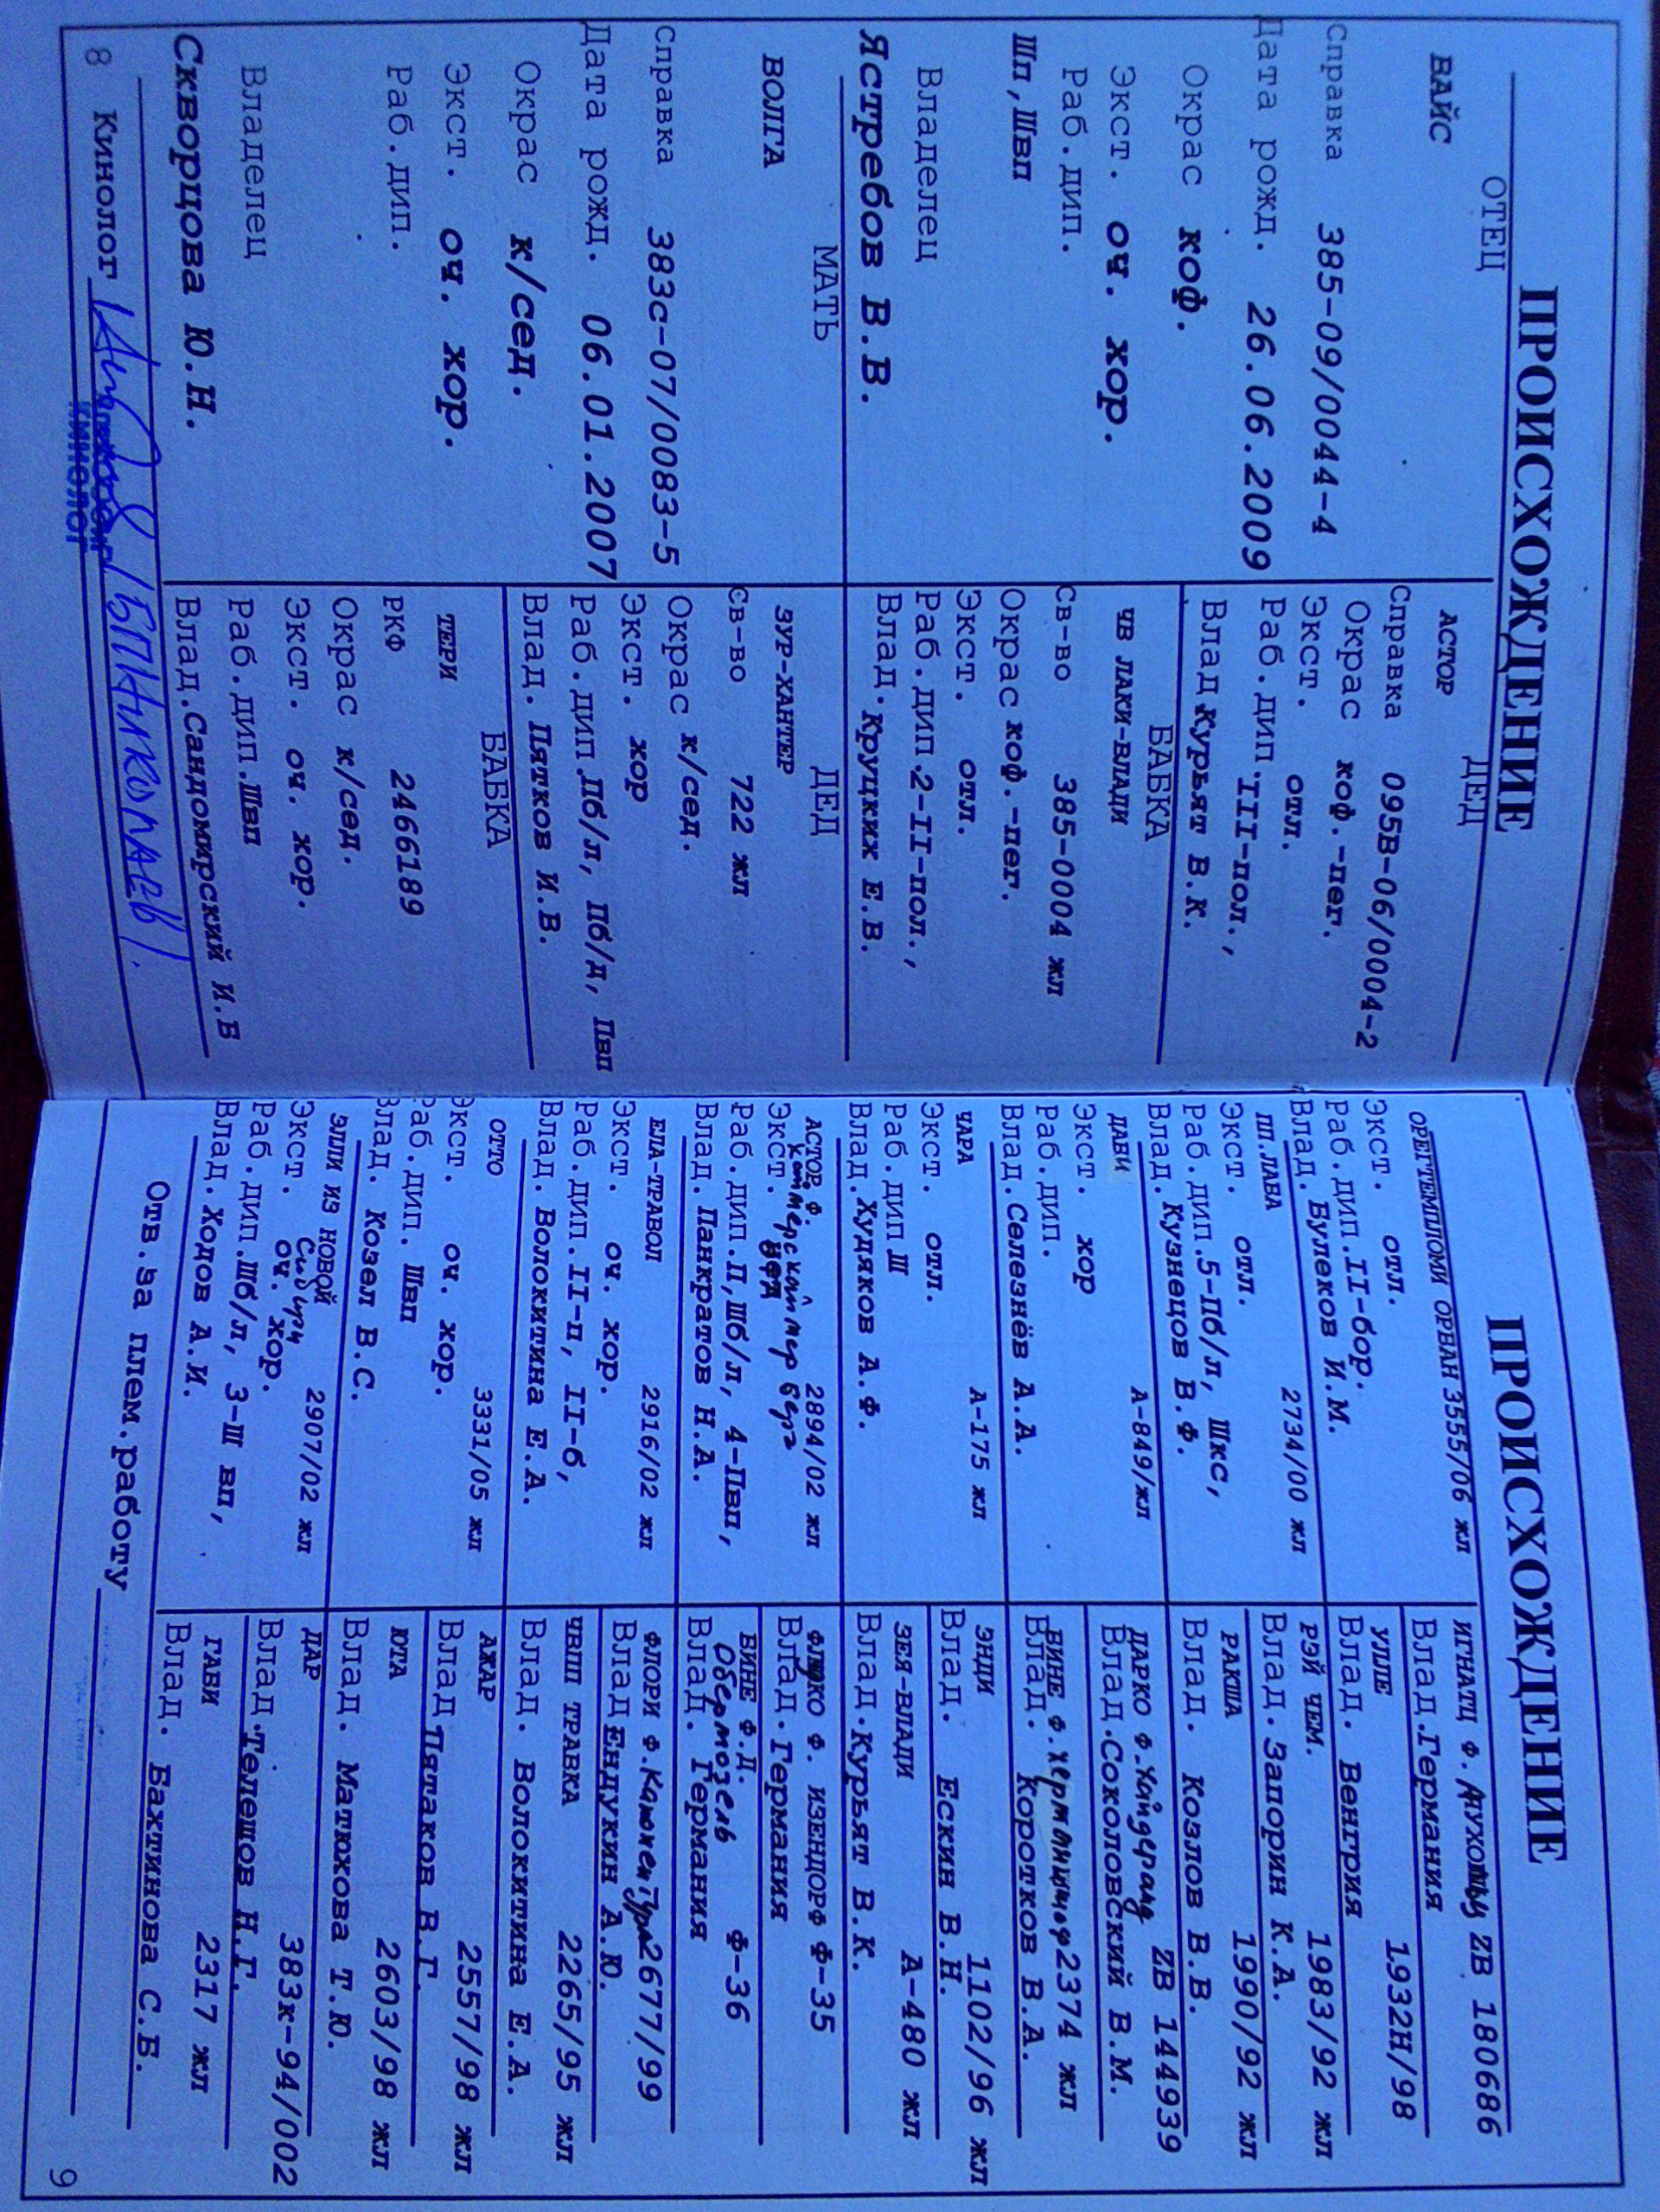 ПРОИСХОЖДЕНИЕ
ОТЕЦ
ВАЙС
Справка 385-09/0044-4
Дата рожд. 26.06.2009
Окрас коф.
Экст. оч. хор.
Раб.дип.
Шп,Швп
Владелец
Ястребов В.В.
МАТЬ
ВОЛГА
Справка 383с-07/0083-5
Дата рожд. 06.01.2007
Окрас к/сед.
Экст. оч. хор.
Раб.дип.
Владелец
Скворцова Ю.Н.
8 Кинолог
КИНОЛОГ
ДЕД
АСТОР
Справка 095В-06/0004-2
Окрас коф.-пег.
Экст. отл.
Раб.дип.III-пол.,
Влад.Курьят В.К.
БАБКА
ЧВ ЛАКИ-ВЛАДИ
Св-во 385-0004 жл
Окрас коф.-пег.
Экст. отл.
Раб.дип.2-II-пол.,
Влад.Круцких Е.В.
ДЕД
ЗУР-ХАНТЕР
Св-во 722 жл
Окрас к/сед.
Экст. хор
Раб.дип.Пб/л, пб/д, Пвп
Влад. Пятков И.В.
БАБКА
ТЕРИ
РКФ 2466189
Окрас к/сед.
Экст. оч. хор.
Раб.дип.Швп
Влад.Сандомирский И.В
ПРОИСХОЖДЕНИЕ
ОРЕГТЕМПЛОМИ ОРВАН 3555/06 жл
Экст. отл.
Раб.дип.II-бор.
Влад. Булеков И.М.
ПЛ.ЛАВА 2734/00 жл
Экст. отл.
Раб.дип.5-Пб/л, Шкс,
Влад.Кузнецов В.Ф.
ДАВИ А-849/жл
Экст. хор
Раб.дип.
Влад.Селезнёв А.А.
ЧАРА А-175 жл
Экст. отл.
Раб.дип Ш
Влад.Худяков А.Ф.
АСТОР Ф. 2894/02 жл
Экст.
Раб.дип.П,Шб/л, 4-Пвп,
Влад.Панкратов Н.А.
ЕЛА-ТРАВОЛ 2916/02 жл
Экст. оч. хор.
Раб.дип.II-п, II-б,
Влад. Волокитина Е.А.
ОТТО 3331/05 жл
Экст. оч. хор.
Раб.дип. Швп
Влад. Козел В.С.
ЭЛЛИ ИЗ НОВОЙ 2907/02 жл
Экст. оч. хор.
Раб.дип.Шб/л, 3-Ш вп,
Влад.Ходов А.И.
Отв.за плем.работу
ИГНАТЦ Ф. ZB 180686
Влад.Германия
УЛЛЕ 1932Н/98
Влад. Венгрия
РЭЙ ЧЕМ. 1983/92 жл
Влад.Запорин К.А.
РАКША 1990/92 жл
Влад. Козлов В.В.
ДАРКО Ф. ZB 144939
Влад.Соколовский В.М.
ВИНЕ Ф. 2374 жл
Влад. Коротков В.А.
ЭНДИ 1102/96 жл
Влад. Ескин В.Н.
ЗЕЯ-ВЛАДИ А-480 жл
Влад.Курьят В.К.
Ф. ИЗЕНДОРФ Ф-35
Влад.Германия
ВИНЕ Ф.Д. Обермозель Ф-36
Влад. Германия
ФЛОРИ Ф. 2677/99
Влад Ендукин А.Ю.
ЧВПП ТРАВКА 2265/95 жл
Влад. Волокитина Е.А.
АЖАР 2557/98 жл
Влад Пятаков В.Г.
ЮТА 2603/98 жл
Влад. Матюхова Т.Ю.
ДАР 383к-94/002
Влад.Телешов Н.Г.
ГАБИ 2317 жл
Влад. Бахтинова С.Б.
9